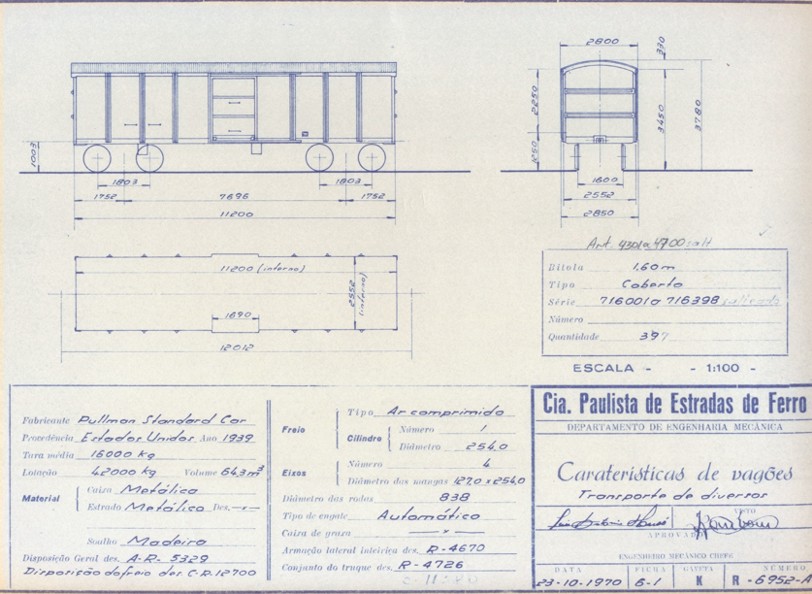 2800
330
2250
3450
3780
1050
1003
1803
1803
1752
7696
1752
11200
1600
2552
2850
11200 (interno)
2552 (interno)
1690
12012
Ant. 4301 a 4700
Bitola 1,60 m
Tipo Coberto
Série 716001 a 716398
Número
Quantidade 397
ESCALA - - 1:100 -
Fabricante Pullman Standard Car
Procedência Estados Unidos Ano 1939
Tara média 16000 kg
Lotação 42000 kg Volume 64,3 m³
Material
Caixa Metálica
Estrado Metálico Des. - -
Soalho Madeira
Disposição Geral des. A-R- 5329
Disposição do freio des. C-R. 12700
Freio
Tipo Ar comprimido
Cilindro
Número 1
Diâmetro 254,0
Eixos
Número 4
Diâmetro das mangas 127,0 x 254,0
Diâmetro das rodas 838
Tipo de engate Automático
Caixa de graxa
Armação lateral inteiriça des. R-4670
Conjunto do truque des. R-4726
Cia. Paulista de Estradas de Ferro
DEPARTAMENTO DE ENGENHARIA MECÂNICA
Caraterísticas de vagões
Transporte de diversos
VISTO
APROVADO
ENGENHEIRO MECÂNICO CHEFE
DATA FICHA GAVETA NÚMERO
23-10-1970 6-1 K R - 6952-A